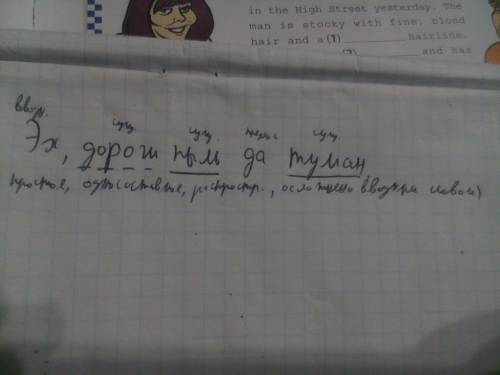 in the High Street yesterday. The
man is stocky with fine, blond
hair and a (1) hairline.
and has
вводн.
сущ. сущ. сущ.
Эх, дорог пыль да туман
простое, односоставное, распростр., осложнено вводным словом)